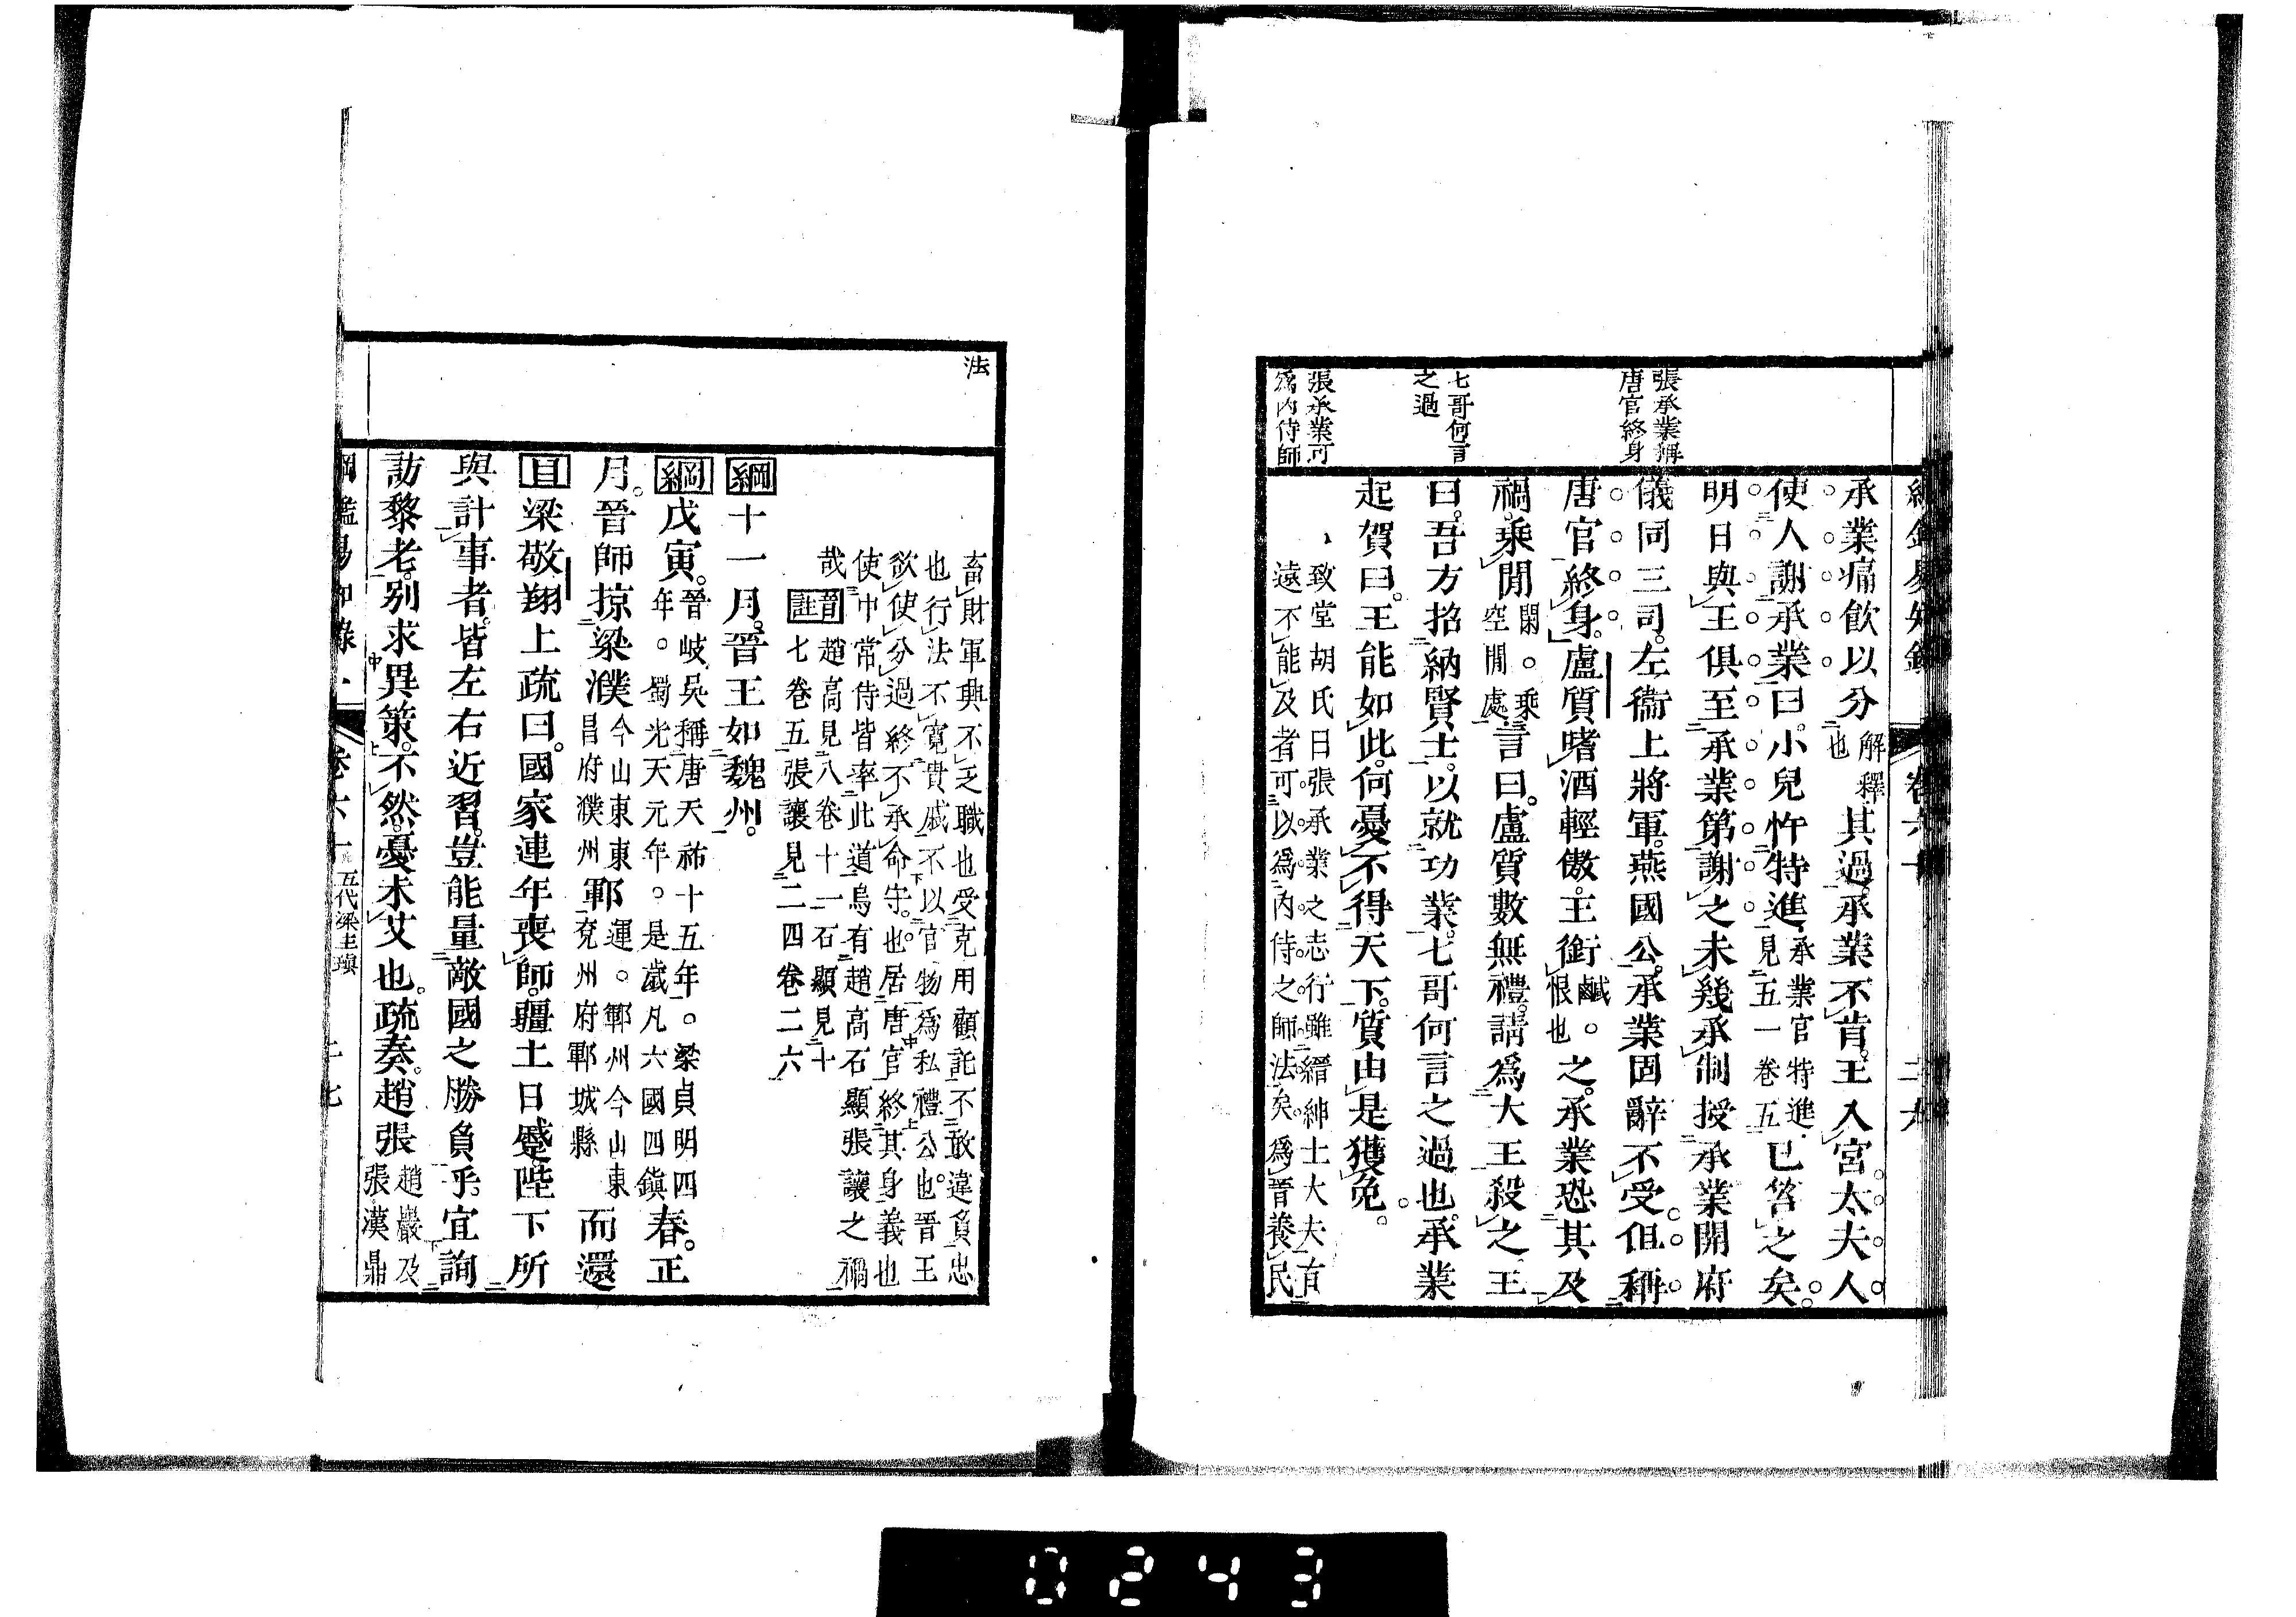 張承業稱
唐官終身
七哥何言
之過
張承業可
爲內侍師
承業痛飲以分
解釋
也
其過。承業不肯。王入宮。太夫人
使人謝承業曰。小兒忤特進
承業官特進
見五一卷五
已笞之矣。
明日與王俱至承業第謝之未幾承制授承業開府
儀同三司。左衞上將軍。燕國公。承業固辭不受。但稱
唐官終身。盧質嗜酒輕傲。王銜
鹹。
恨也
之。承業恐其及
禍。乘閒
閑。乘
空閒處
言曰。盧質數無禮。請爲大王殺之。王
曰。吾方招納賢士。以就功業。七哥何言之過也。承業
起賀曰。王能如此。何憂不得天下。質由是獲免。
致堂胡氏曰張承業之志行雖縉紳士大夫有
遠不能及者可以爲內侍之師法矣爲晉養民
卷六十
法
畜財軍興不乏職也受克用顧託不敢違負忠
也行法不寬貴戚不以官物爲私禮公也晉王
欲使分過終不承命守也居唐官終其身義也
使中常侍皆率此道烏有趙高石顯張讓之禍
哉
晉註
趙高見八卷十一石顯見十
七卷五張讓見二四卷二六
綱十一月。晉王如魏州。
綱戊寅。
晉岐吳稱唐天祐十五年。梁貞明四
年。蜀光天元年。是歲凡六國四鎭
春。正
月。晉師掠梁濮
今山東東
昌府濮州
鄆
運。鄆州今山東
兗州府鄆城縣
而還
目梁敬翔上疏曰。國家連年喪師。疆土日蹙陛下所
與計事者。皆左右近習。豈能量敵國之勝負乎。宜詢
訪黎老。別求異策。不然。憂未艾也。疏奏。趙張
趙巖及
張漢鼎
五代梁主瑱
0243